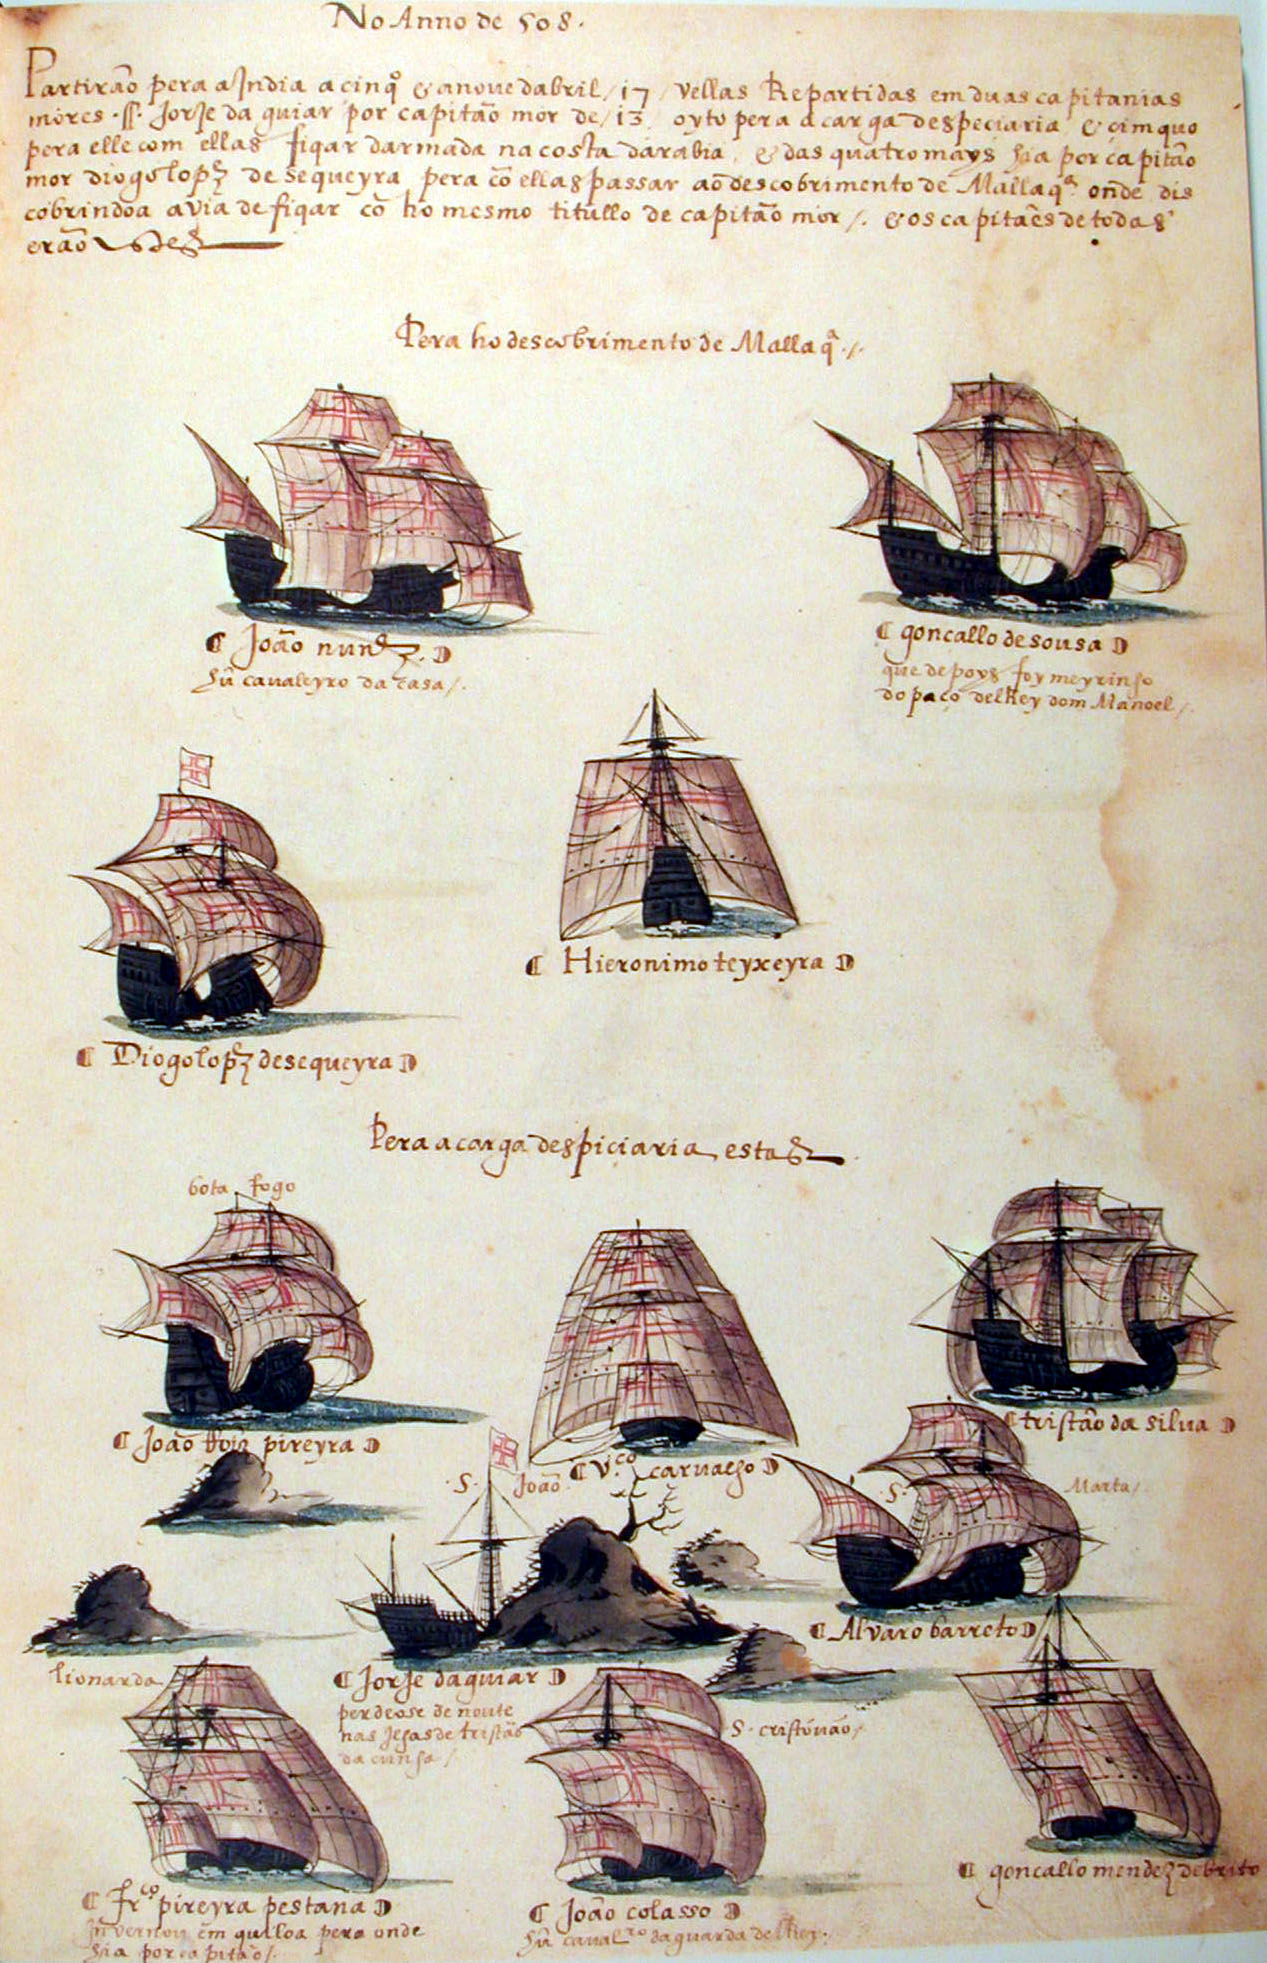 No Anno de 508.
Partirão pera a India a cinqº & a nove dabril /17/ vellas Repartidas em duas capitanias
mores .ſſ. Jorje da guiar por capitão mor de /13/ oyto pera a carga despeciaria & cimquo
pera elle com ellas fiqar darmada na costa darabia, & das quatro mays hia por capitão
mor diogo lopz de sequeyra pera cõ ellas passar ao descobrimento de Mallaqª onde dis
cobrindoa avia de fiqar cõ ho mesmo titullo de capitão mor /. & os capitães de todas
erão estes
Pera ho descobrimento de Mallaqª ./.
João nunez.
hũ cavaleyro da casa /.
goncallo de sousa
que depoys foy meyrinho
do paço delRey dom Manoel /.
Hieronimo teyxeyra
Diogo lopz de sequeyra
Pera a carga despiciaria estas
bota fogo
João Roiz pireyra
Vco carvalho
tristão da silva
S. João
S. Marta /
Alvaro barreto
lionarda
Jorje daguiar
perdeose de noute
nas jlhas de tristão
da cunha /
S. cristóvão /
Frco pireyra pestana
Invernou em quiloa pera onde
hia por capitão /.
João colasso
hũ cavalro da guarda delRey.
goncallo mendez de brito